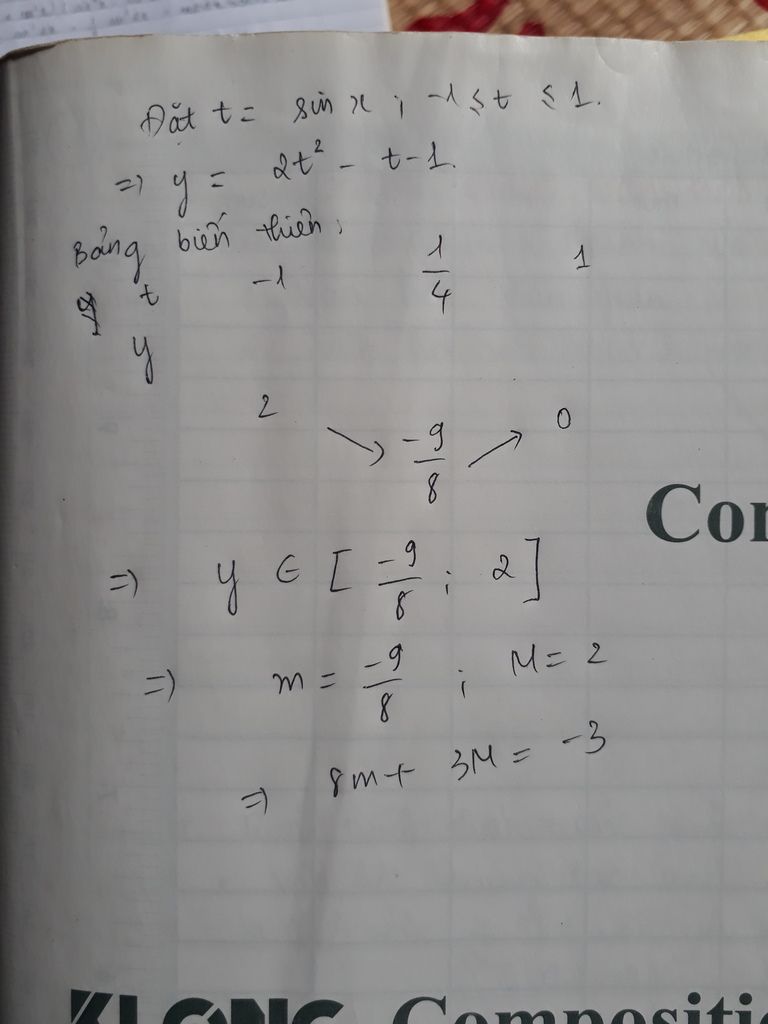 Đặt t = sin x ; -1 ≤ t ≤ 1.
=> y = 2t² - t - 1.
Bảng biến thiên:
t -1 1/4 1
y
2 ↘ -9/8 ↗ 0
Com
=> y ∈ [ -9/8 ; 2 ]
=> m = -9/8 ; M = 2
=> 8m + 3M = -3
KLONG Compositio